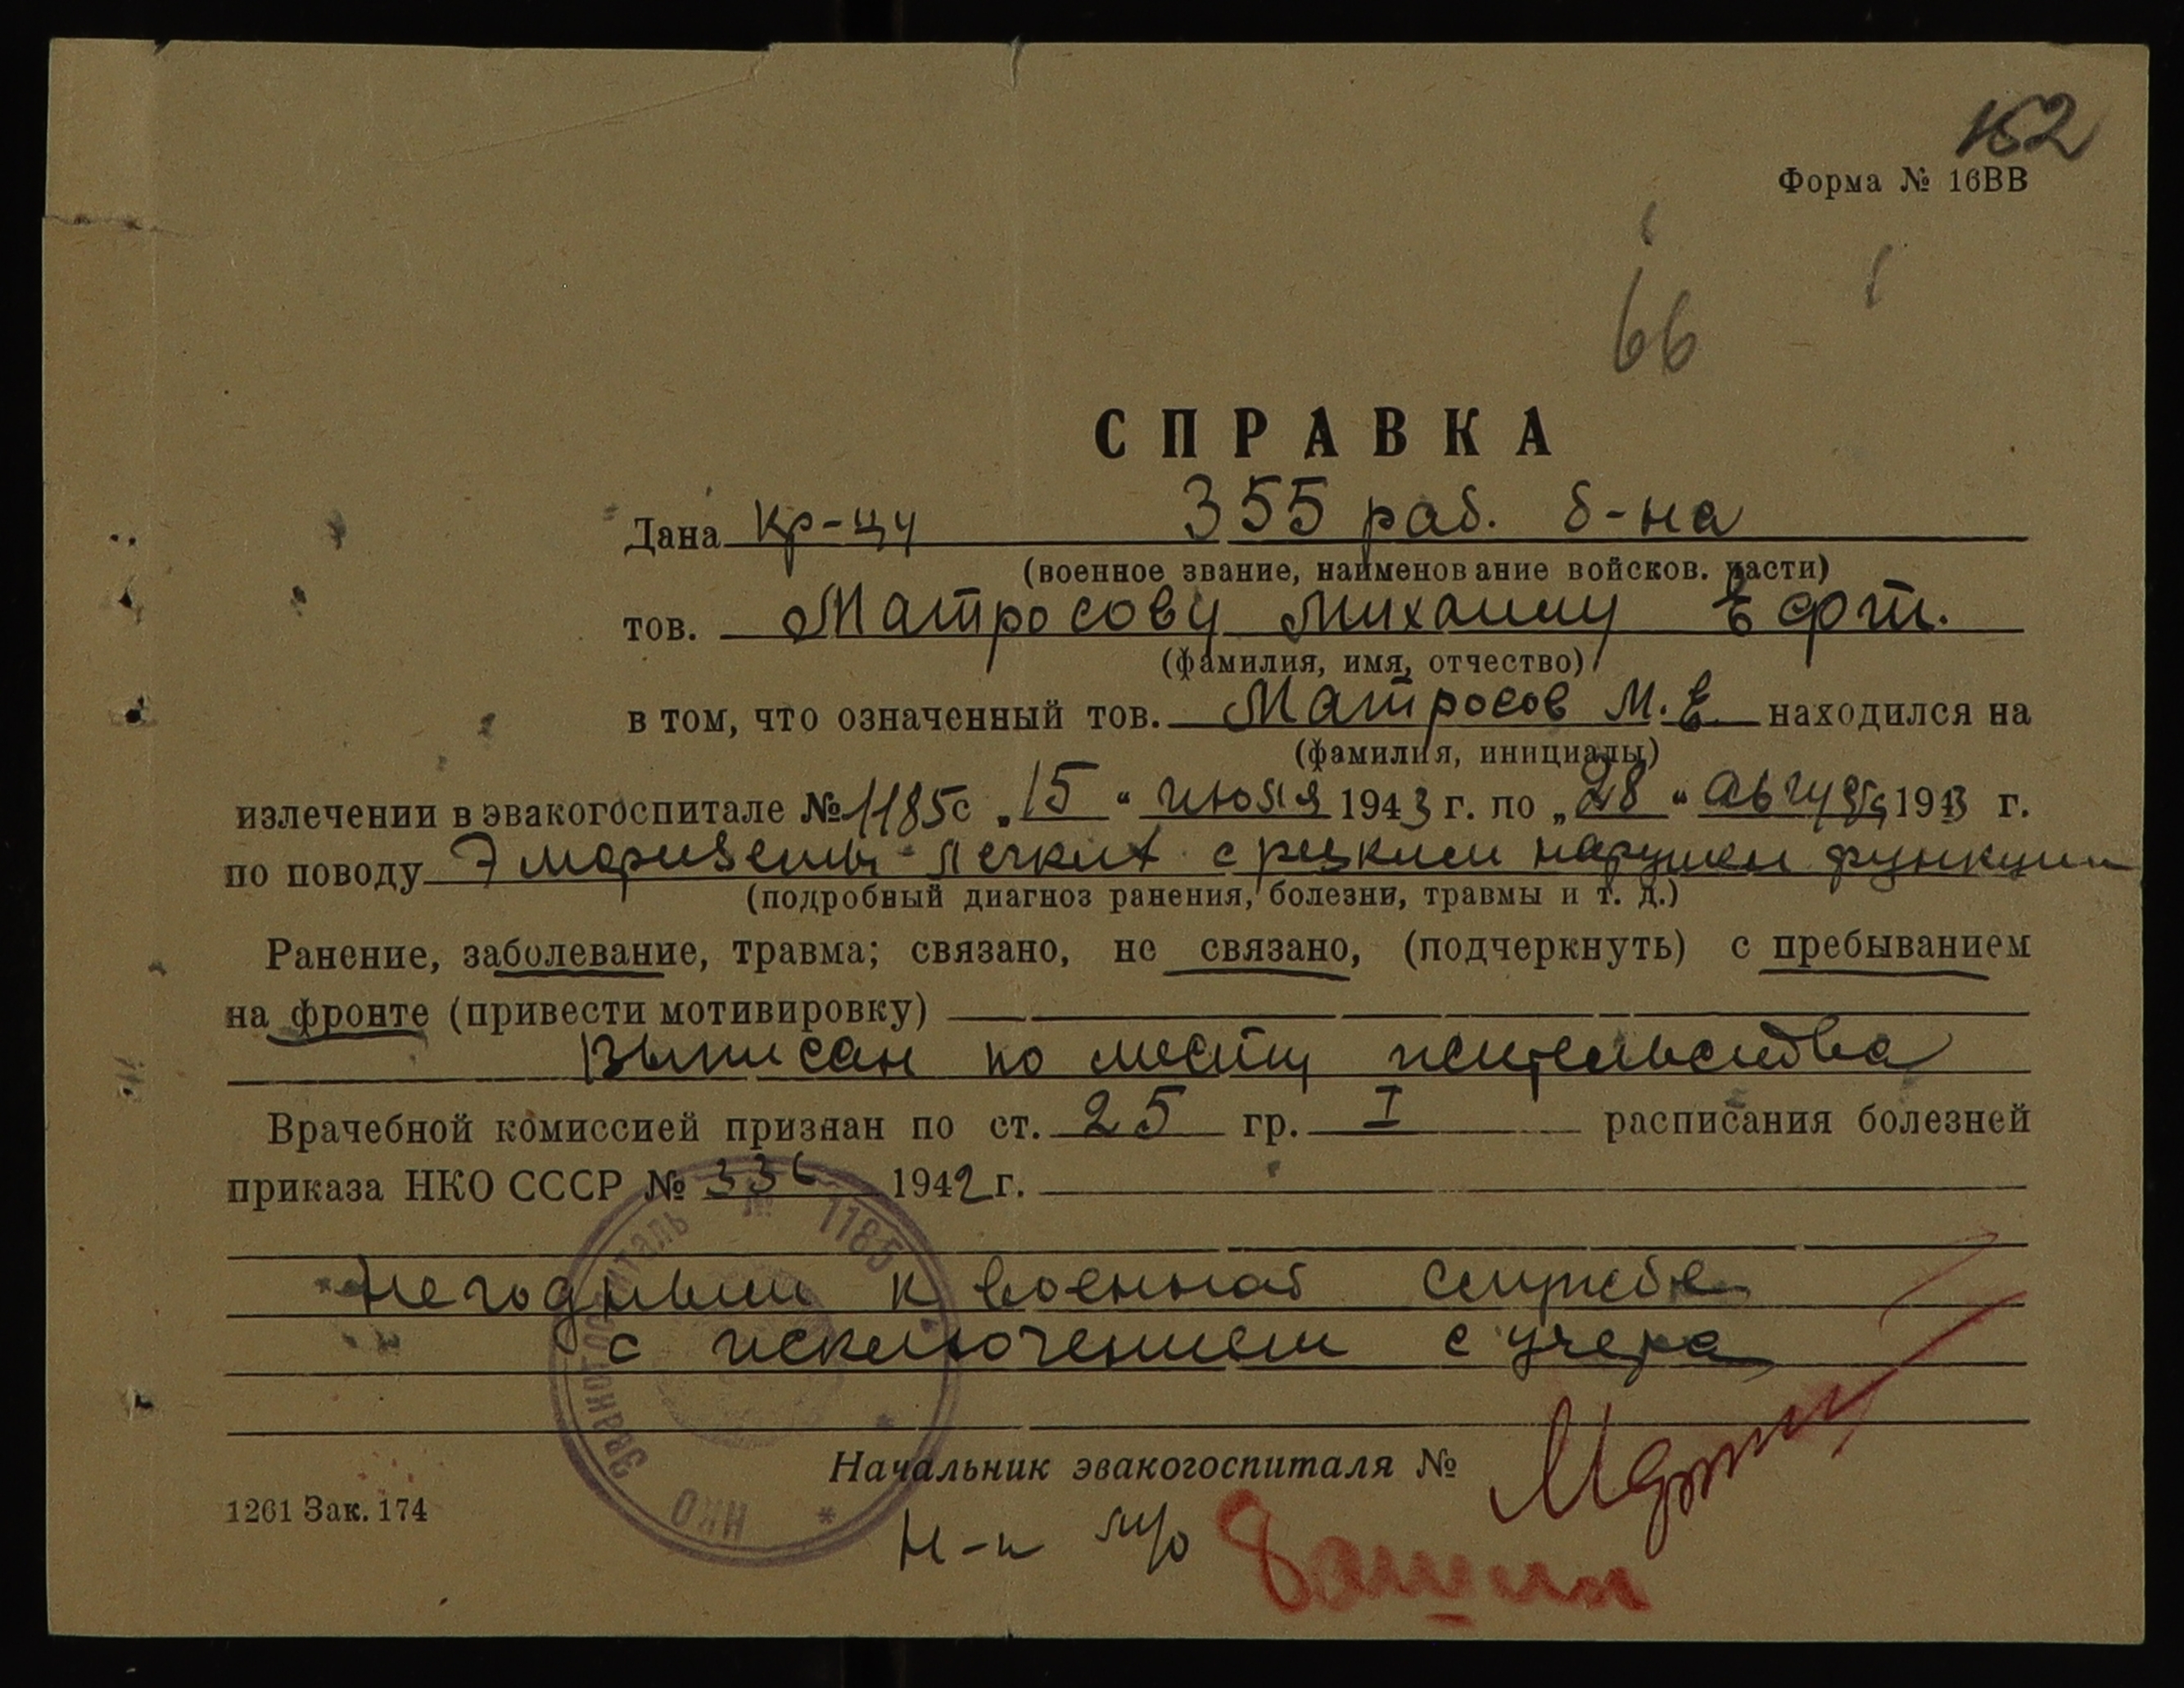 152
Форма № 16ВВ
66
СПРАВКА
Дана кр-цу 355 раб. б-на
(военное звание, наименование войсков. части)
тов. Матросову Михаилу Ефт.
(фамилия, имя, отчество)
в том, что означенный тов. Матросов М. Е. находился на
(фамилия, инициалы)
излечении в эвакогоспитале № 1185 с „15“ июля 1943 г. по „28“ августа 1943 г.
по поводу Эмфиземы легких с резким нарушен функции
(подробный диагноз ранения, болезни, травмы и т. д.)
Ранение, заболевание, травма; связано, не связано, (подчеркнуть) с пребыванием
на фронте (привести мотивировку)
Выписан по месту жительства
Врачебной комиссией признан по ст. 25 гр. I расписания болезней
приказа НКО СССР № 336 1942 г.
Негодным к военной службе
с исключением с учета
Начальник эвакогоспиталя №
1261 Зак. 174
Н-к м/о
Эвакогоспиталь № 1185
НКО